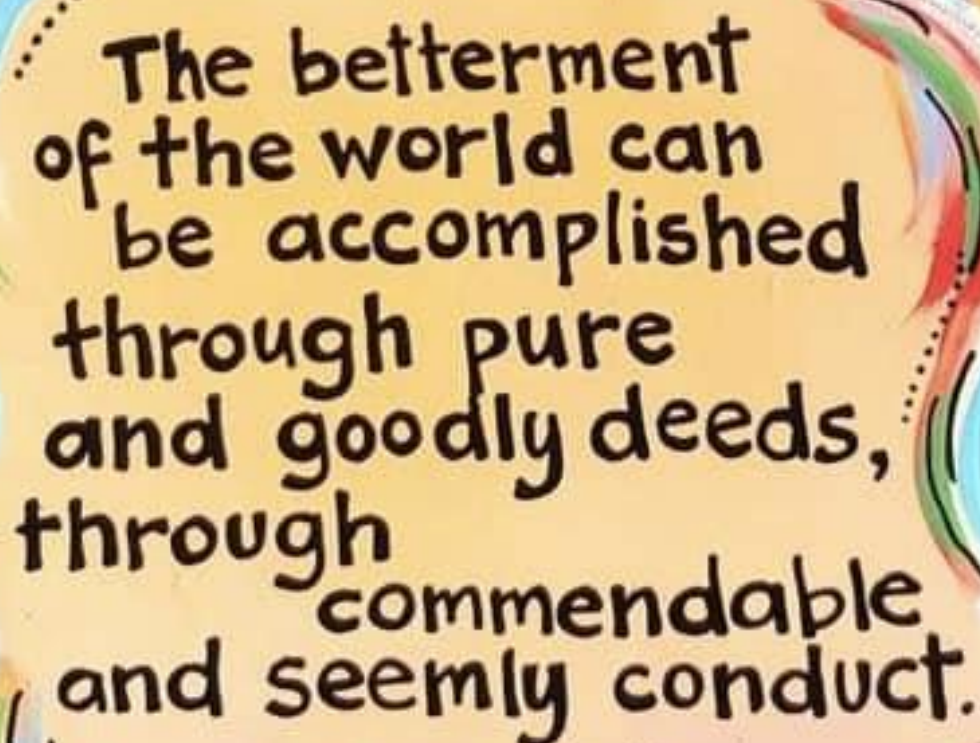 The betterment
of the world can
be accomplished
through pure
and goodly deeds,
through
commendable
and seemly conduct.